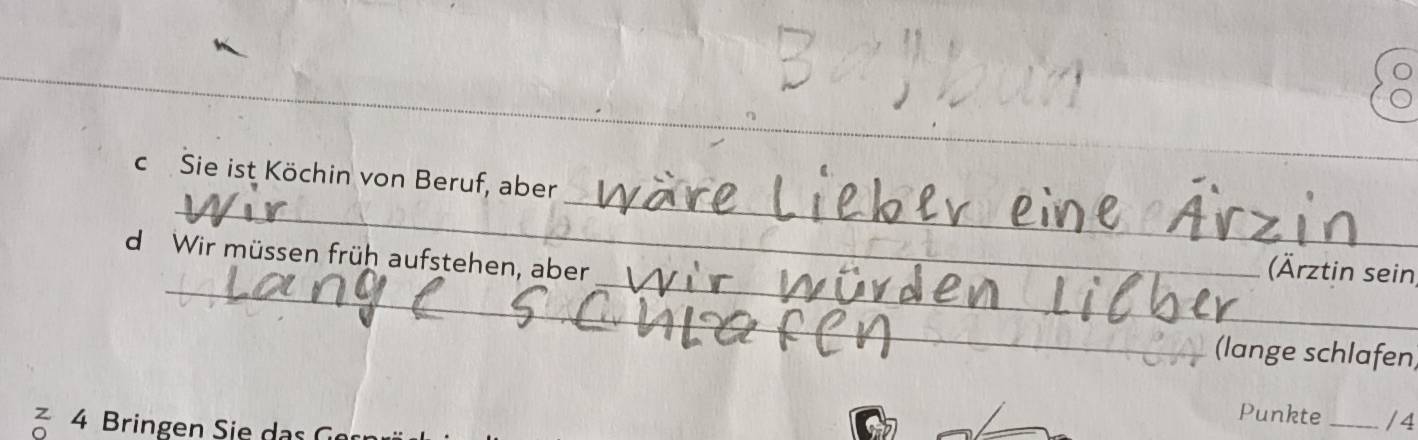 8
c Sie ist Köchin von Beruf, aber wäre lieber eine Ärzin
wir
(Ärztin sein,
d Wir müssen früh aufstehen, aber wir würden lieber
lange schlafen
(lange schlafen,
Punkte ____ /4
4 Bringen Sie das